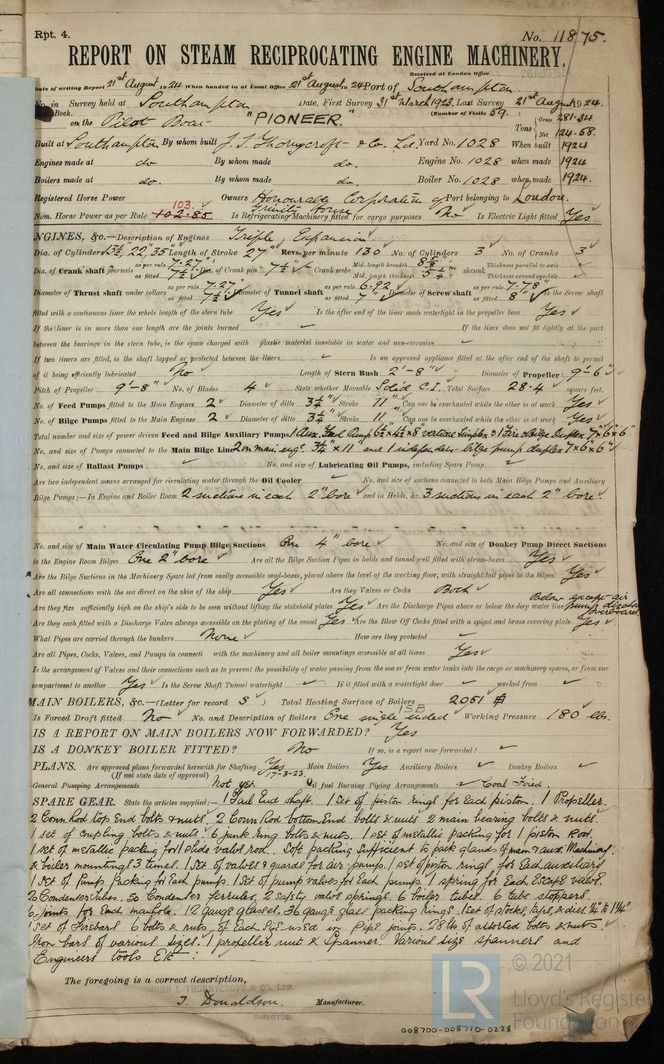 Rpt. 4. No. 11875.
REPORT ON STEAM RECIPROCATING ENGINE MACHINERY.
Received at London Office
Date of writing Report 21st August 1924 When handed in at Local Office 21st August 1924 Port of Southampton
No. in Survey held at Southampton Date, First Survey 31st March 1923, Last Survey 21st August 1924.
Book. (Number of Visits 59.
on the Pilot Boat "PIONEER." Tons Gross 281.34 Net 124.58
Built at Southampton By whom built J. I. Thornycroft & Co. Ld. Yard No. 1028 When built 1924
Engines made at do By whom made do. Engine No. 1028 when made 1924
Boilers made at do. By whom made do Boiler No. 1028 when made 1924.
Registered Horse Power Owners Honourable Corporation of Trinity House Port belonging to London.
Nom. Horse Power as per Rule 102.85 103. Is Refrigerating Machinery fitted for cargo purposes No Is Electric Light fitted Yes
ENGINES, &c.—Description of Engines Triple Expansion
Dia. of Cylinders 13½", 22", 35" Length of Stroke 27" Revs. per minute 130 No. of Cylinders 3 No. of Cranks 3
Dia. of Crank shaft journals as per rule 7.27" as fitted 7½" Dia. of Crank pin 7½" Crank webs Mid. length breadth Mid. length thickness shrunk Thickness parallel to axis Thickness around eye-hole
Diameter of Thrust shaft under collars as per rule 7.27 as fitted 7½" Diameter of Tunnel shaft as per rule 6.92 as fitted 7" Diameter of Screw shaft as per rule 7.78" as fitted 8" Is the Screw shaft
fitted with a continuous liner the whole length of the stern tube Yes Is the after end of the liner made watertight in the propeller boss Yes
If the liner is in more than one length are the joints burned If the liner does not fit tightly at the part
between the bearings in the stern tube, is the space charged with plastic material insoluble in water and non-corrosive
If two liners are fitted, is the shaft lapped or protected between the liners Is an approved appliance fitted at the after end of the shaft to permit
of it being efficiently lubricated No Length of Stern Bush 2'-8" Diameter of Propeller 9'-6"
Pitch of Propeller 9'-8" No. of Blades 4 State whether Moveable Solid C.I. Total Surface 28.4 square feet.
No. of Feed Pumps fitted to the Main Engines 2 Diameter of ditto 3¼" Stroke 11" Can one be overhauled while the other is at work Yes
No. of Bilge Pumps fitted to the Main Engines 2 Diameter of ditto 3¼" Stroke 11" Can one be overhauled while the other is at work Yes
Total number and size of power driven Feed and Bilge Auxiliary Pumps 1 Aux. Feed Pump 6½" x 4½" x 8" vertical Simplex & 1 Fire & Bilge Duplex 7" x 6" x 6"
No. and size of Pumps connected to the Main Bilge Line 2 on main eng. 3¼" x 11" and 1 independent bilge pump duplex 7" x 6" x 6"
No. and size of Ballast Pumps No. and size of Lubricating Oil Pumps, including Spare Pump
Are two independent means arranged for circulating water through the Oil Cooler No. and size of suctions connected to both Main Bilge Pumps and Auxiliary
Bilge Pumps:—In Engine and Boiler Room 2 suctions in each 2" bore and in Holds, &c. 3 suctions in each 2" bore
No. and size of Main Water Circulating Pump Bilge Suctions One 4" bore No. and size of Donkey Pump Direct Suctions
to the Engine Room Bilges One 2" bore Are all the Bilge Suction Pipes in holds and tunnel well fitted with strum-boxes Yes
Are the Bilge Suctions in the Machinery Space led from easily accessible mud-boxes, placed above the level of the working floor, with straight tail pipes to the bilges Yes
Are all connections with the sea direct on the skin of the ship Yes Are they Valves or Cocks Both
Are they fixed sufficiently high on the ship's side to be seen without lifting the stokehold plates Yes Are the Discharge Pipes above or below the deep water line below except air pump discharge overboard
Are they each fitted with a Discharge Valve always accessible on the plating of the vessel Yes Are the Blow Off Cocks fitted with a spigot and brass covering plate Yes
What Pipes are carried through the bunkers None How are they protected
Are all Pipes, Cocks, Valves, and Pumps in connection with the machinery and all boiler mountings accessible at all times Yes
Is the arrangement of Valves and their connections such as to prevent the possibility of water passing from the sea or from water tanks into the cargo or machinery spaces, or from one
compartment to another Yes Is the Screw Shaft Tunnel watertight Is it fitted with a watertight door worked from
MAIN BOILERS, &c.—(Letter for record S) Total Heating Surface of Boilers 2051
Is Forced Draft fitted No No. and Description of Boilers One single ended 1SB Working Pressure 180 lbs.
IS A REPORT ON MAIN BOILERS NOW FORWARDED? Yes
IS A DONKEY BOILER FITTED? No If so, is a report now forwarded?
PLANS. Are approved plans forwarded herewith for Shafting Yes Main Boilers Yes Auxiliary Boilers Donkey Boilers
(If not state date of approval) 17-3-23.
General Pumping Arrangements Not yet. Oil fuel Burning Piping Arrangements Coal Fired.
SPARE GEAR. State the articles supplied:— 1 Tail End shaft. 1 Set of piston rings for Each piston. 1 Propeller.
2 Conn Rod top End bolts & nuts. 2 Conn Rod bottom End bolts & nuts 2 main bearing bolts & nuts.
1 set of coupling bolts & nuts. 6 junk ring bolts & nuts. 1 set of metallic packing for 1 piston Rod.
1 set of metallic packing for 1 slide valve rod. Soft packing sufficient to pack glands of main & aux Machinery
& boiler mountings 3 times. 1 Set of valves & guards for air pumps. 1 set of piston rings for Each auxiliary
1 Set of Pump Packing for Each pumps. 1 Set of pump valves for Each pump. 1 spring for Each Escape valve.
20 Condenser tubes. 50 Condenser ferrules, 2 safety valve springs. 6 boiler tubes. 6 tube stoppers.
6 joints for Each manhole. 12 gauge glasses. 36 gauge glass packing rings. 1 set of stocks, taps, & dies. ¼" to 1¼"
1 set of Firebars 6 bolts & nuts, of Each size used in Pipe joints. 28 lbs of assorted bolts & nuts
Iron bars of various sizes. 1 propeller nut & Spanner. Various size spanners and
Engineers tools Etc.
The foregoing is a correct description,
T. Donaldson. Manufacturer.
DIRECTOR.
© 2021
LR Lloyd's Register
Foundation
008700-008710-0228